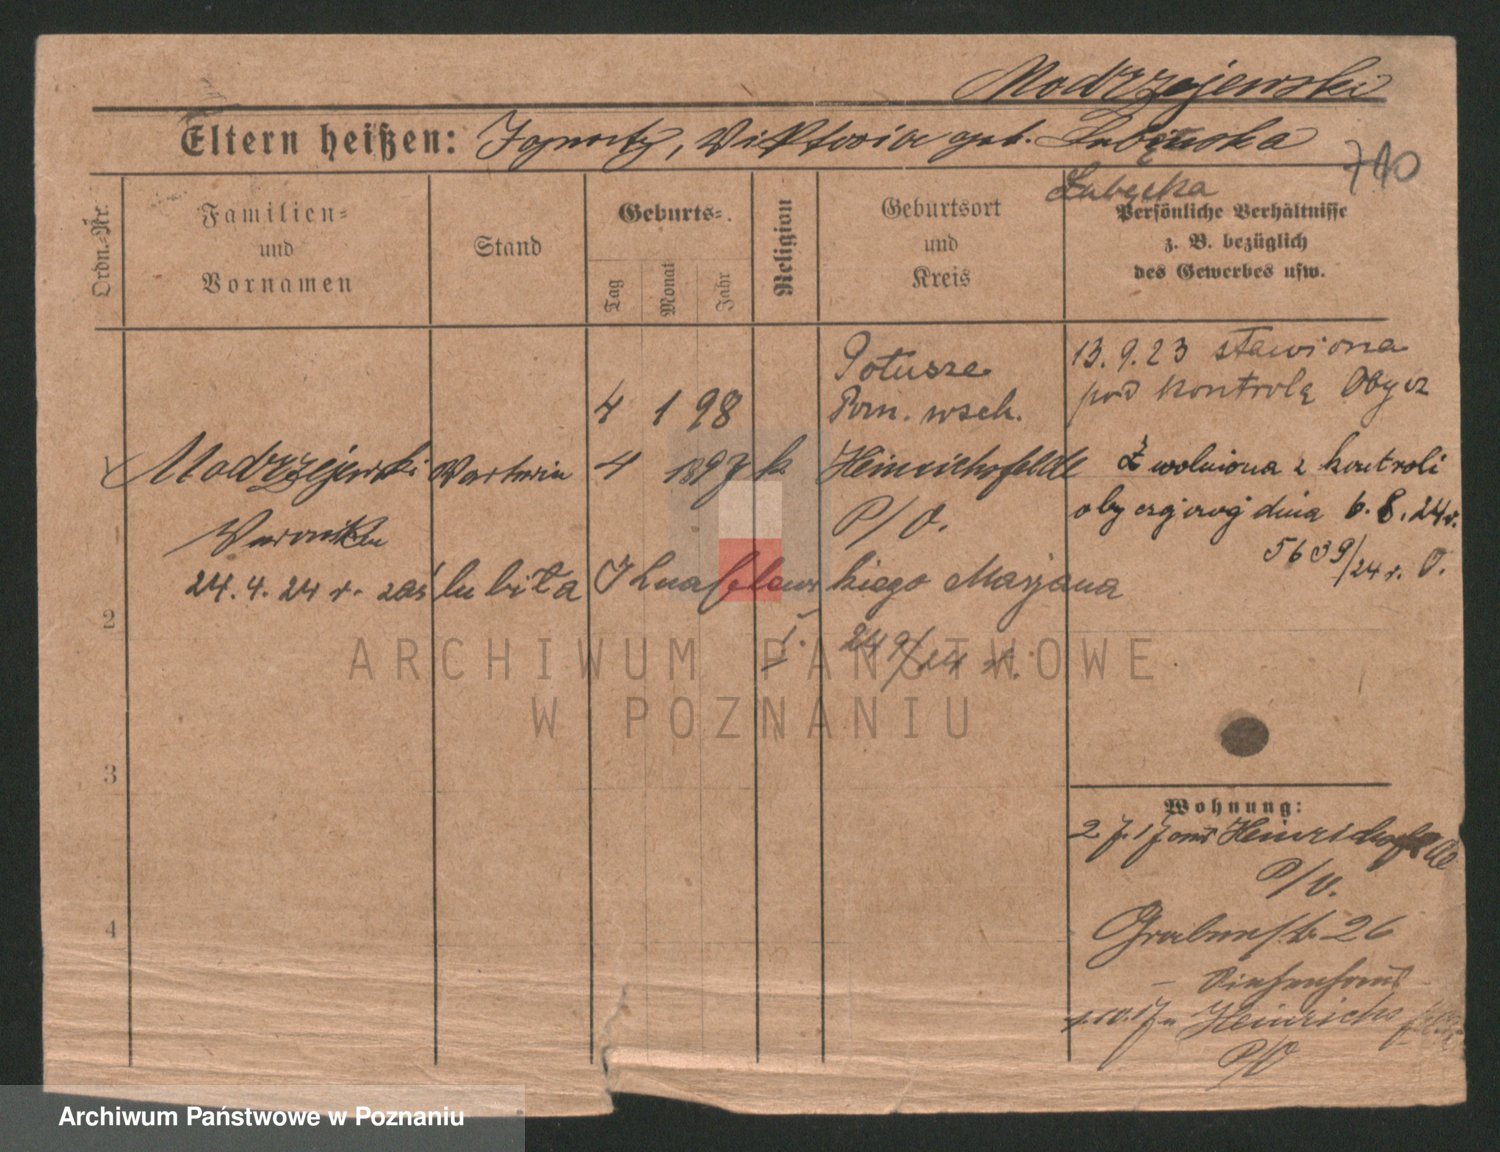 Modrzejewski
Eltern heißen: Ignatz, Viktoria geb. Lubęcka
710
Lubęcka
Ordn.=Nr.
Familien=
und
Vornamen
Stand
Geburts=.
Tag
Monat
Jahr
Religion
Geburtsort
und
Kreis
Persönliche Verhältnisse
z. B. bezüglich
des Gewerbes usw.
4 1 98
Potusze
Pozn. wsch.
13.9.23 stawiona
pod kontrolę Obycz
1 Modrzejewski
4 1897 k.
Heinrichsfelde
P/O.
Zwolniona z kontroli
obyczajowej dnia 6.8.24r.
5639/24 r. O.
Veronika
24.4.24 r. zaślubiła Marjana
I. 249/24 r.
2
3
4
Wohnung:
Heinrichsfelde
P/O.
Grabenstr. 26
1.10.17 n Heinrichsfelde
P/O
ARCHIWUM PAŃSTWOWE
W POZNANIU
Archiwum Państwowe w Poznaniu